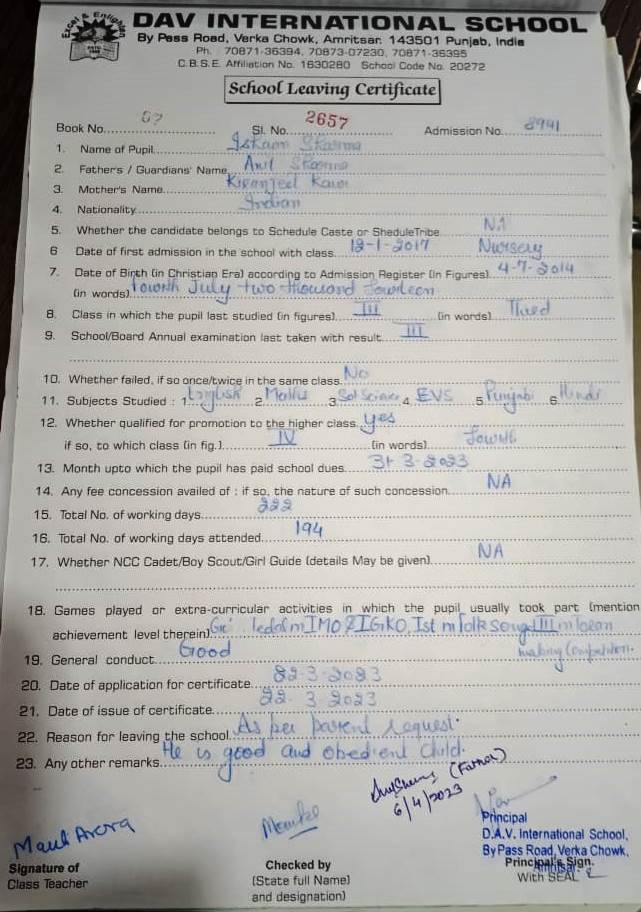 DAV INTERNATIONAL SCHOOL
By Pass Road, Verka Chowk, Amritsar. 143501 Punjab, India
Ph. 70871-36394, 70873-07230, 70871-36395
C.B.S.E. Affiliation No. 1630280 School Code No. 20272
School Leaving Certificate
Book No. 57 Sl. No. 2657 Admission No. 8941
1. Name of Pupil Sharma
2. Father's / Guardians' Name Anil Sharma
3. Mother's Name Kiranjeet Kaur
4. Nationality Indian
5. Whether the candidate belongs to Schedule Caste or SheduleTribe N.A
6 Date of first admission in the school with class 12-1-2017 Nursery
7. Date of Birth (in Christian Era) according to Admission Register (in Figures) 4-7-2014
(in words) Fourth July two thousand Fourteen
8. Class in which the pupil last studied (in figures) III (in words) Third
9. School/Board Annual examination last taken with result III
10. Whether failed, if so once/twice in the same class No
11. Subjects Studied : 1 English 2 Maths 3 4 EVS 5 Punjabi 6 Hindi
12. Whether qualified for promotion to the higher class yes
if so, to which class (in fig.) IV (in words) Fourth
13. Month upto which the pupil has paid school dues 31-3-2023
14. Any fee concession availed of : if so, the nature of such concession NA
15. Total No. of working days 222
16. Total No. of working days attended 194
17. Whether NCC Cadet/Boy Scout/Girl Guide (details May be given) NA
18. Games played or extra-curricular activities in which the pupil usually took part (mention
achievement level therein) IMO & IGKO, Ist in folk song III in
making Competition.
19. General conduct Good
20. Date of application for certificate 22-3-2023
21. Date of issue of certificate 22-3-2023
22. Reason for leaving the school As per parent request.
23. Any other remarks He is good and obedient child.
(Father)
6/4/2023
Principal
D.A.V. International School,
By Pass Road, Verka Chowk,
Amritsar.
Arora
Signature of
Class Teacher
Checked by
(State full Name)
and designation)
Principal's Sign.
With SEAL